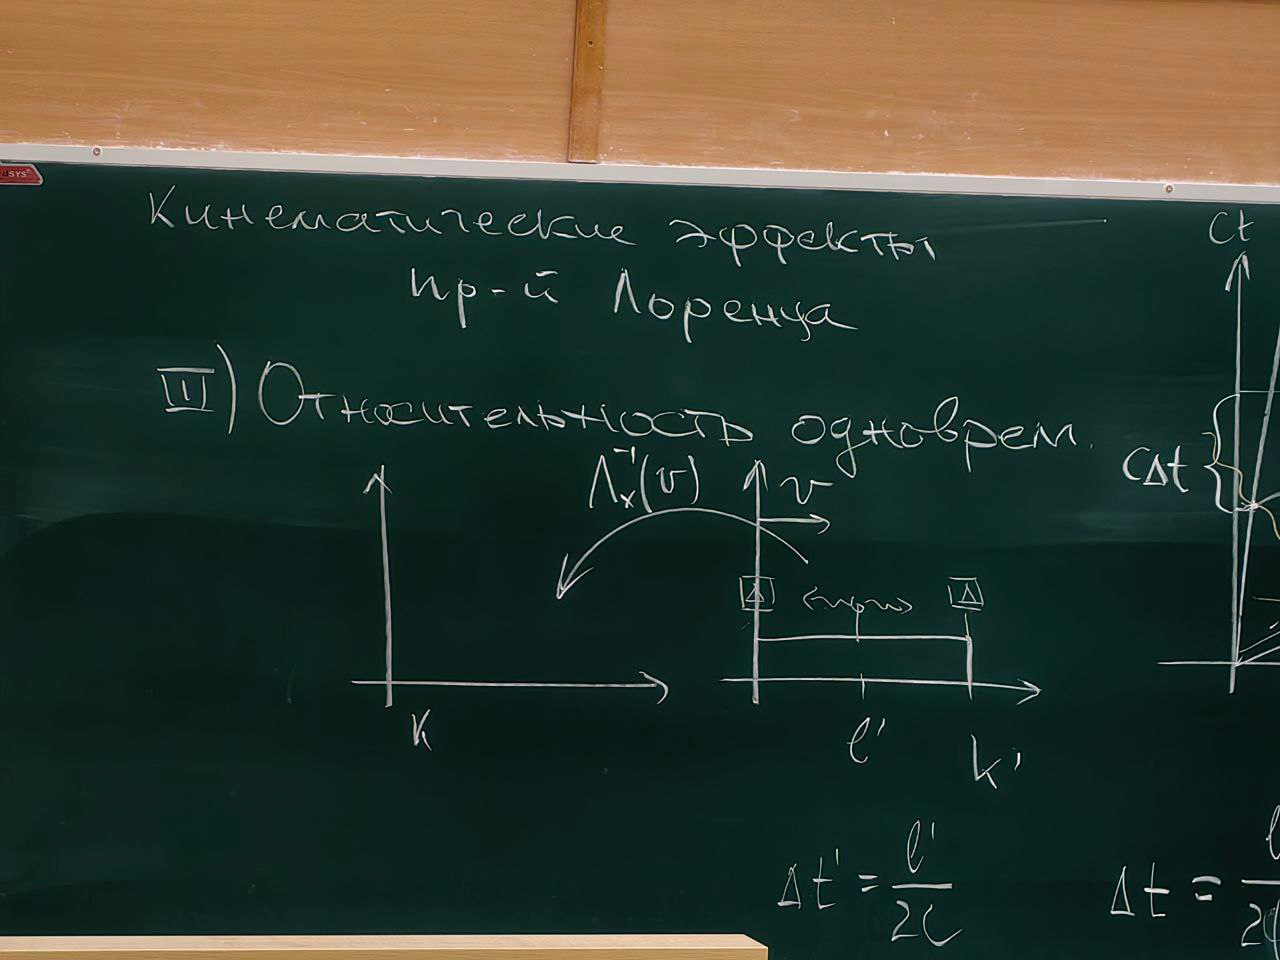 Кинематические эффекты
пр-й Лоренца
III) Относительность одноврем.
Λₓ⁻¹(v)
v
K
l'
K'
Δt' = l'/2c
ct
cΔt
Δt =